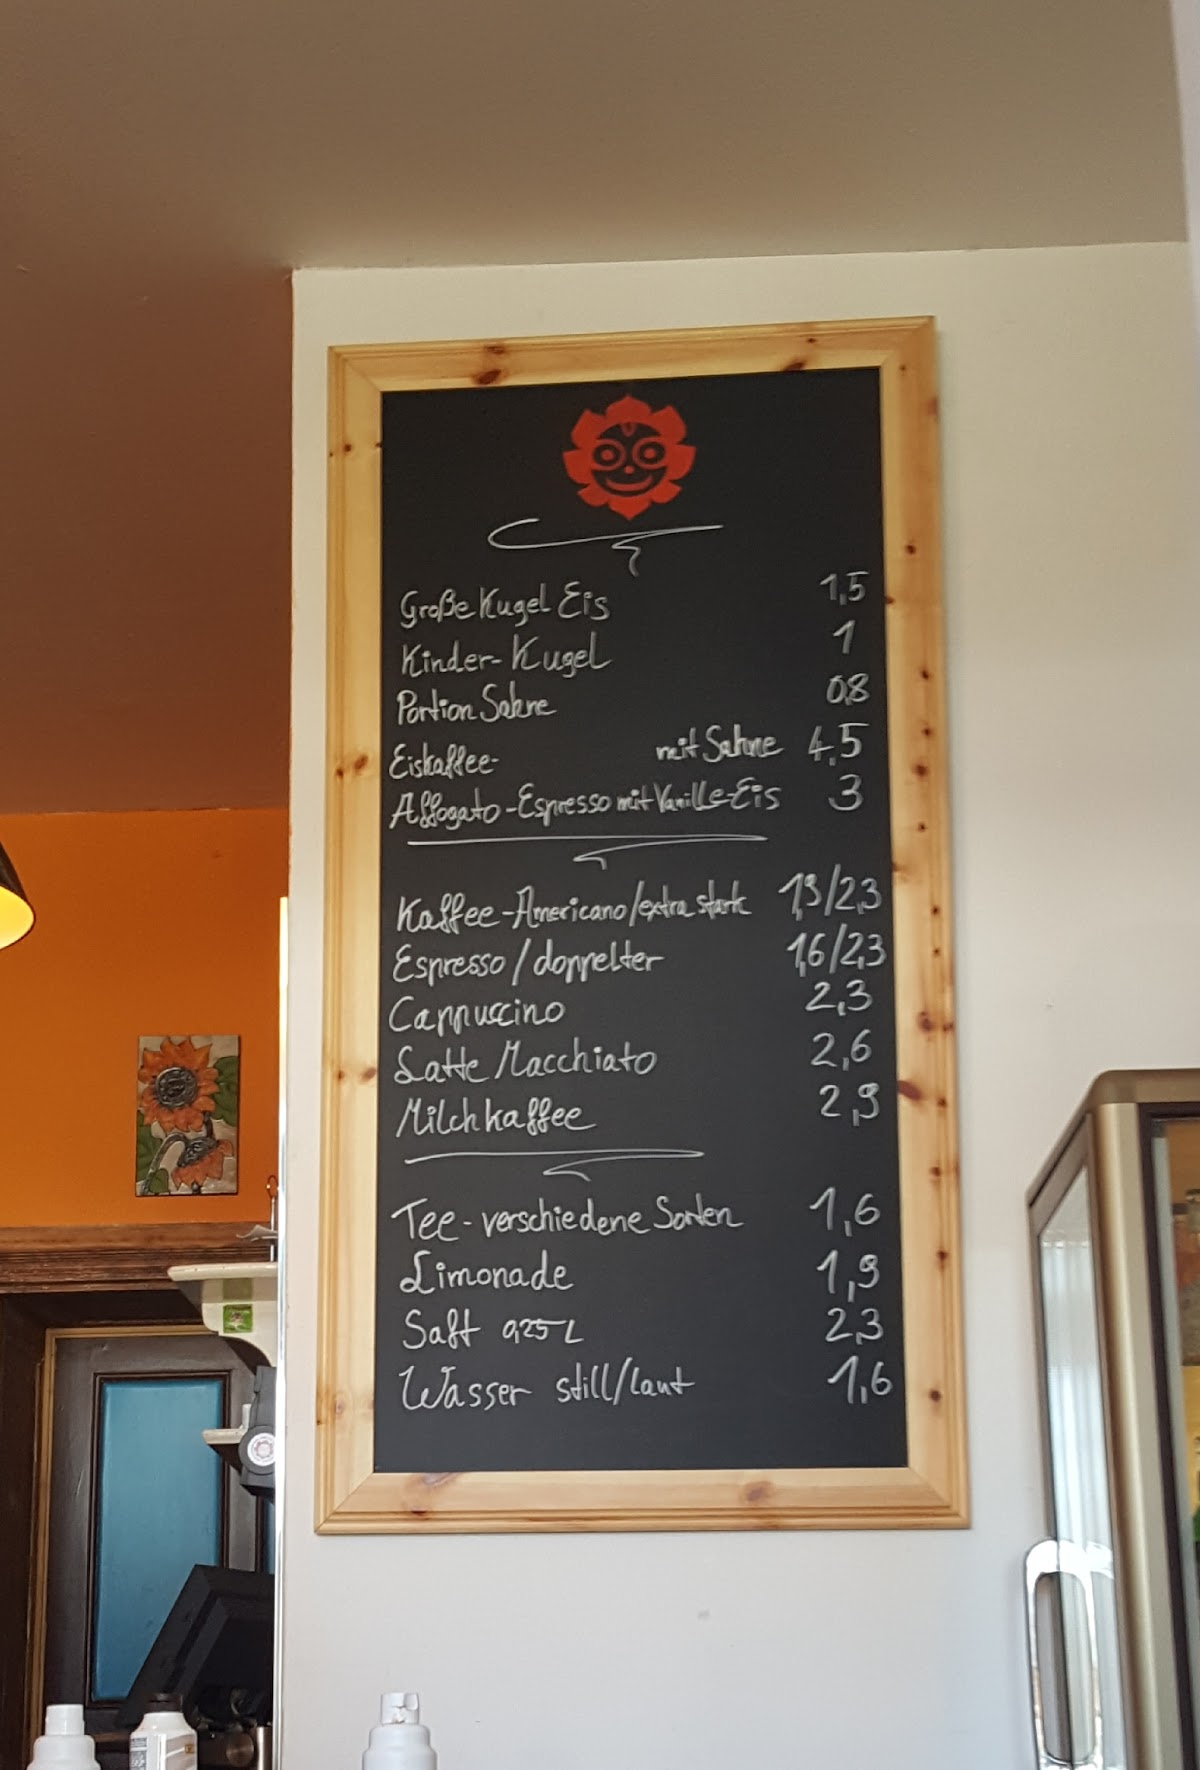 Große Kugel Eis 1,5
Kinder-Kugel 1
Portion Sahne 0,8
Eiskaffee- mit Sahne 4,5
Affogato-Espresso mit Vanille-Eis 3
Kaffee-Americano/extra stark 1,9/2,3
Espresso/doppelter 1,6/2,3
Cappuccino 2,3
Latte Macchiato 2,6
Milchkaffee 2,9
Tee-verschiedene Sorten 1,6
Limonade 1,9
Saft 0,25 L 2,3
Wasser still/laut 1,6